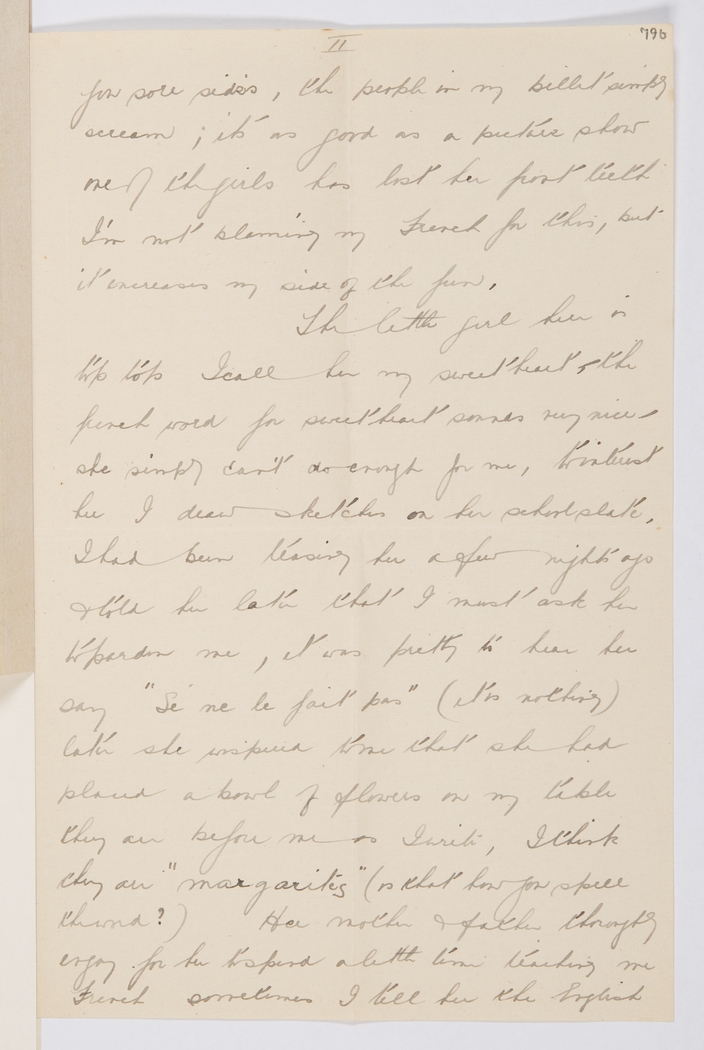 II
796
for sore sides, the people in my billet simply
scream; it's as good as a picture show
one of the girls has lost her front teeth
I'm not blaming my French for this, but
it increases my side of the fun.
The little girl here is
tip top I call her my sweetheart, the
french word for sweetheart sounds very nice
she simply can't do enough for me, to interest
her I draw sketches on her school slate,
I had been teasing her a few nights ago
& told her later that I must ask her
to pardon me, it was pretty to hear her
say "Sé ne le fait pas" (it is nothing)
later she wispered to me that she had
placed a bowl of flowers on my table
they are before me as I write, I think
they are "margarites" (is that how you spell
the word?) Her mother & father thoroughly
enjoy for her to spend a little time teaching me
French sometimes I tell her the English